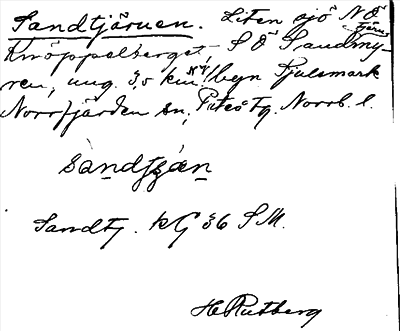 Sandtjärnen. Liten sjö NÖ
Knöppelberget, SÖ Sandmy-
ren, ung. 3,5 km NV byn Fjulsmark
Norrfjärden sn, Piteå tg. Norrb. l.
Sandtj. kG 36 SM.
H Rutberg